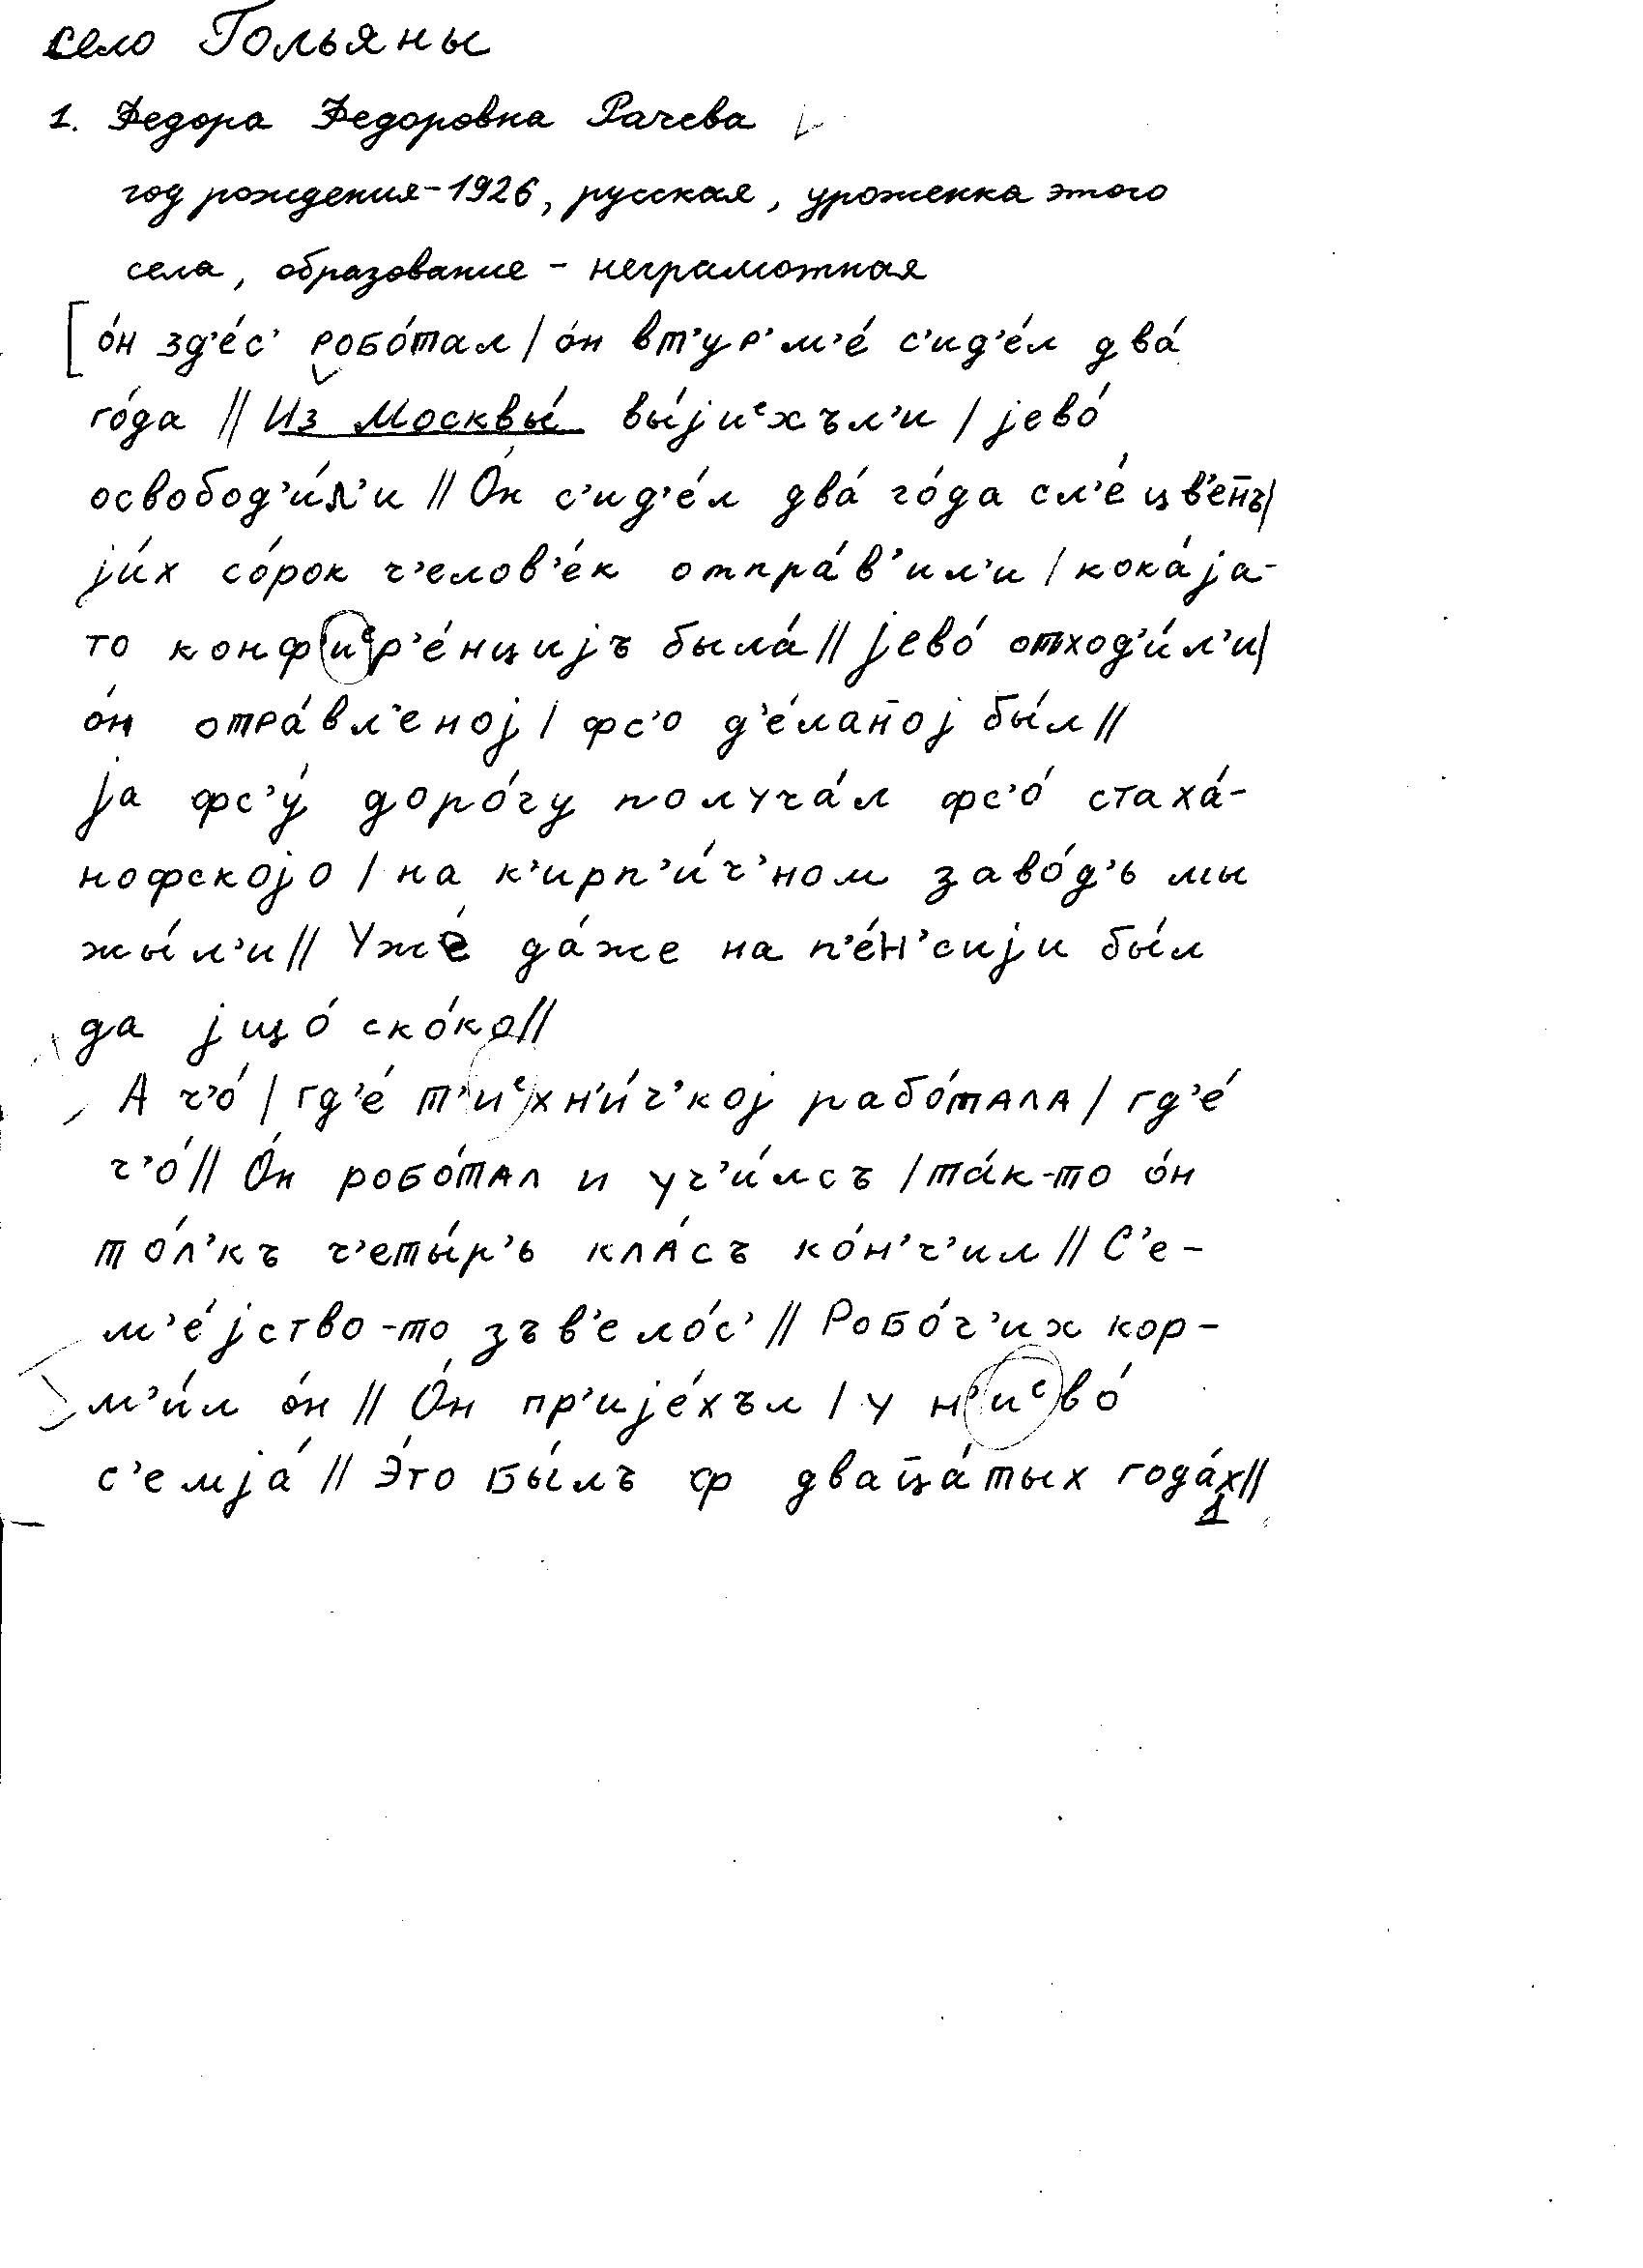 село Гольяны
1. Федора Федоровна Рачева
год рождения-1926, русская, уроженка этого
села, образование - неграмотная
[о́н зд'е́с' робо́тал / о́н вт'ур'м'е́ с'ид'е́л два́
го́да // Из Москвы́ вы́jиᵉхъл'и / jево́
освобод'и́л'и // О́н с'ид'е́л два́ го́да сл'е́цв'ен̄ъ /
jи́х со́рок ч'елов'е́к отпра́в'ил'и / кока́jа-
то конфиᵉр'е́нциjъ была́ // jево́ отход'и́л'и /
о́н отра́вл'еноj / фс'о д'е́лан̄оj бы́л //
jа фс'у́ доро́гу получа́л фс'о́ стаха́-
нофскоjо / на к'ирп'и́ч'ном заво́д'ь мы
жы́л'и // Уже́ да́же на п'е́н'сиjи бы́л
да jщо́ ско́ко //
А ч'о́ / гд'е́ т'иᵉхн'и́ч'коj рабо́тала / гд'е́
ч'о́ // О́н робо́тал и уч'и́лсъ / та́к-то о́н
то́л'къ ч'еты́р'ь кла́съ ко́н'ч'ил // С'е-
м'е́jство-то зъв'ело́с' // Робо́ч'их кор-
м'и́л о́н // О́н пр'иjе́хъл / у н'иᵉво́
с'емjа́ // Э́то бы́лъ ф двац̄а́тых года́х //
1